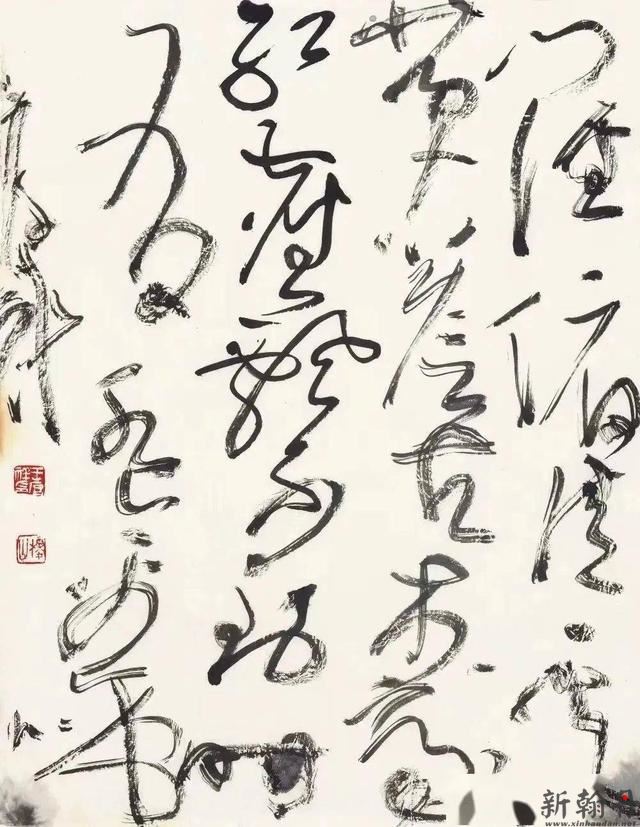 门径俯清溪
茅檐古木齐
红尘飘不到时
有水禽啼
新翰